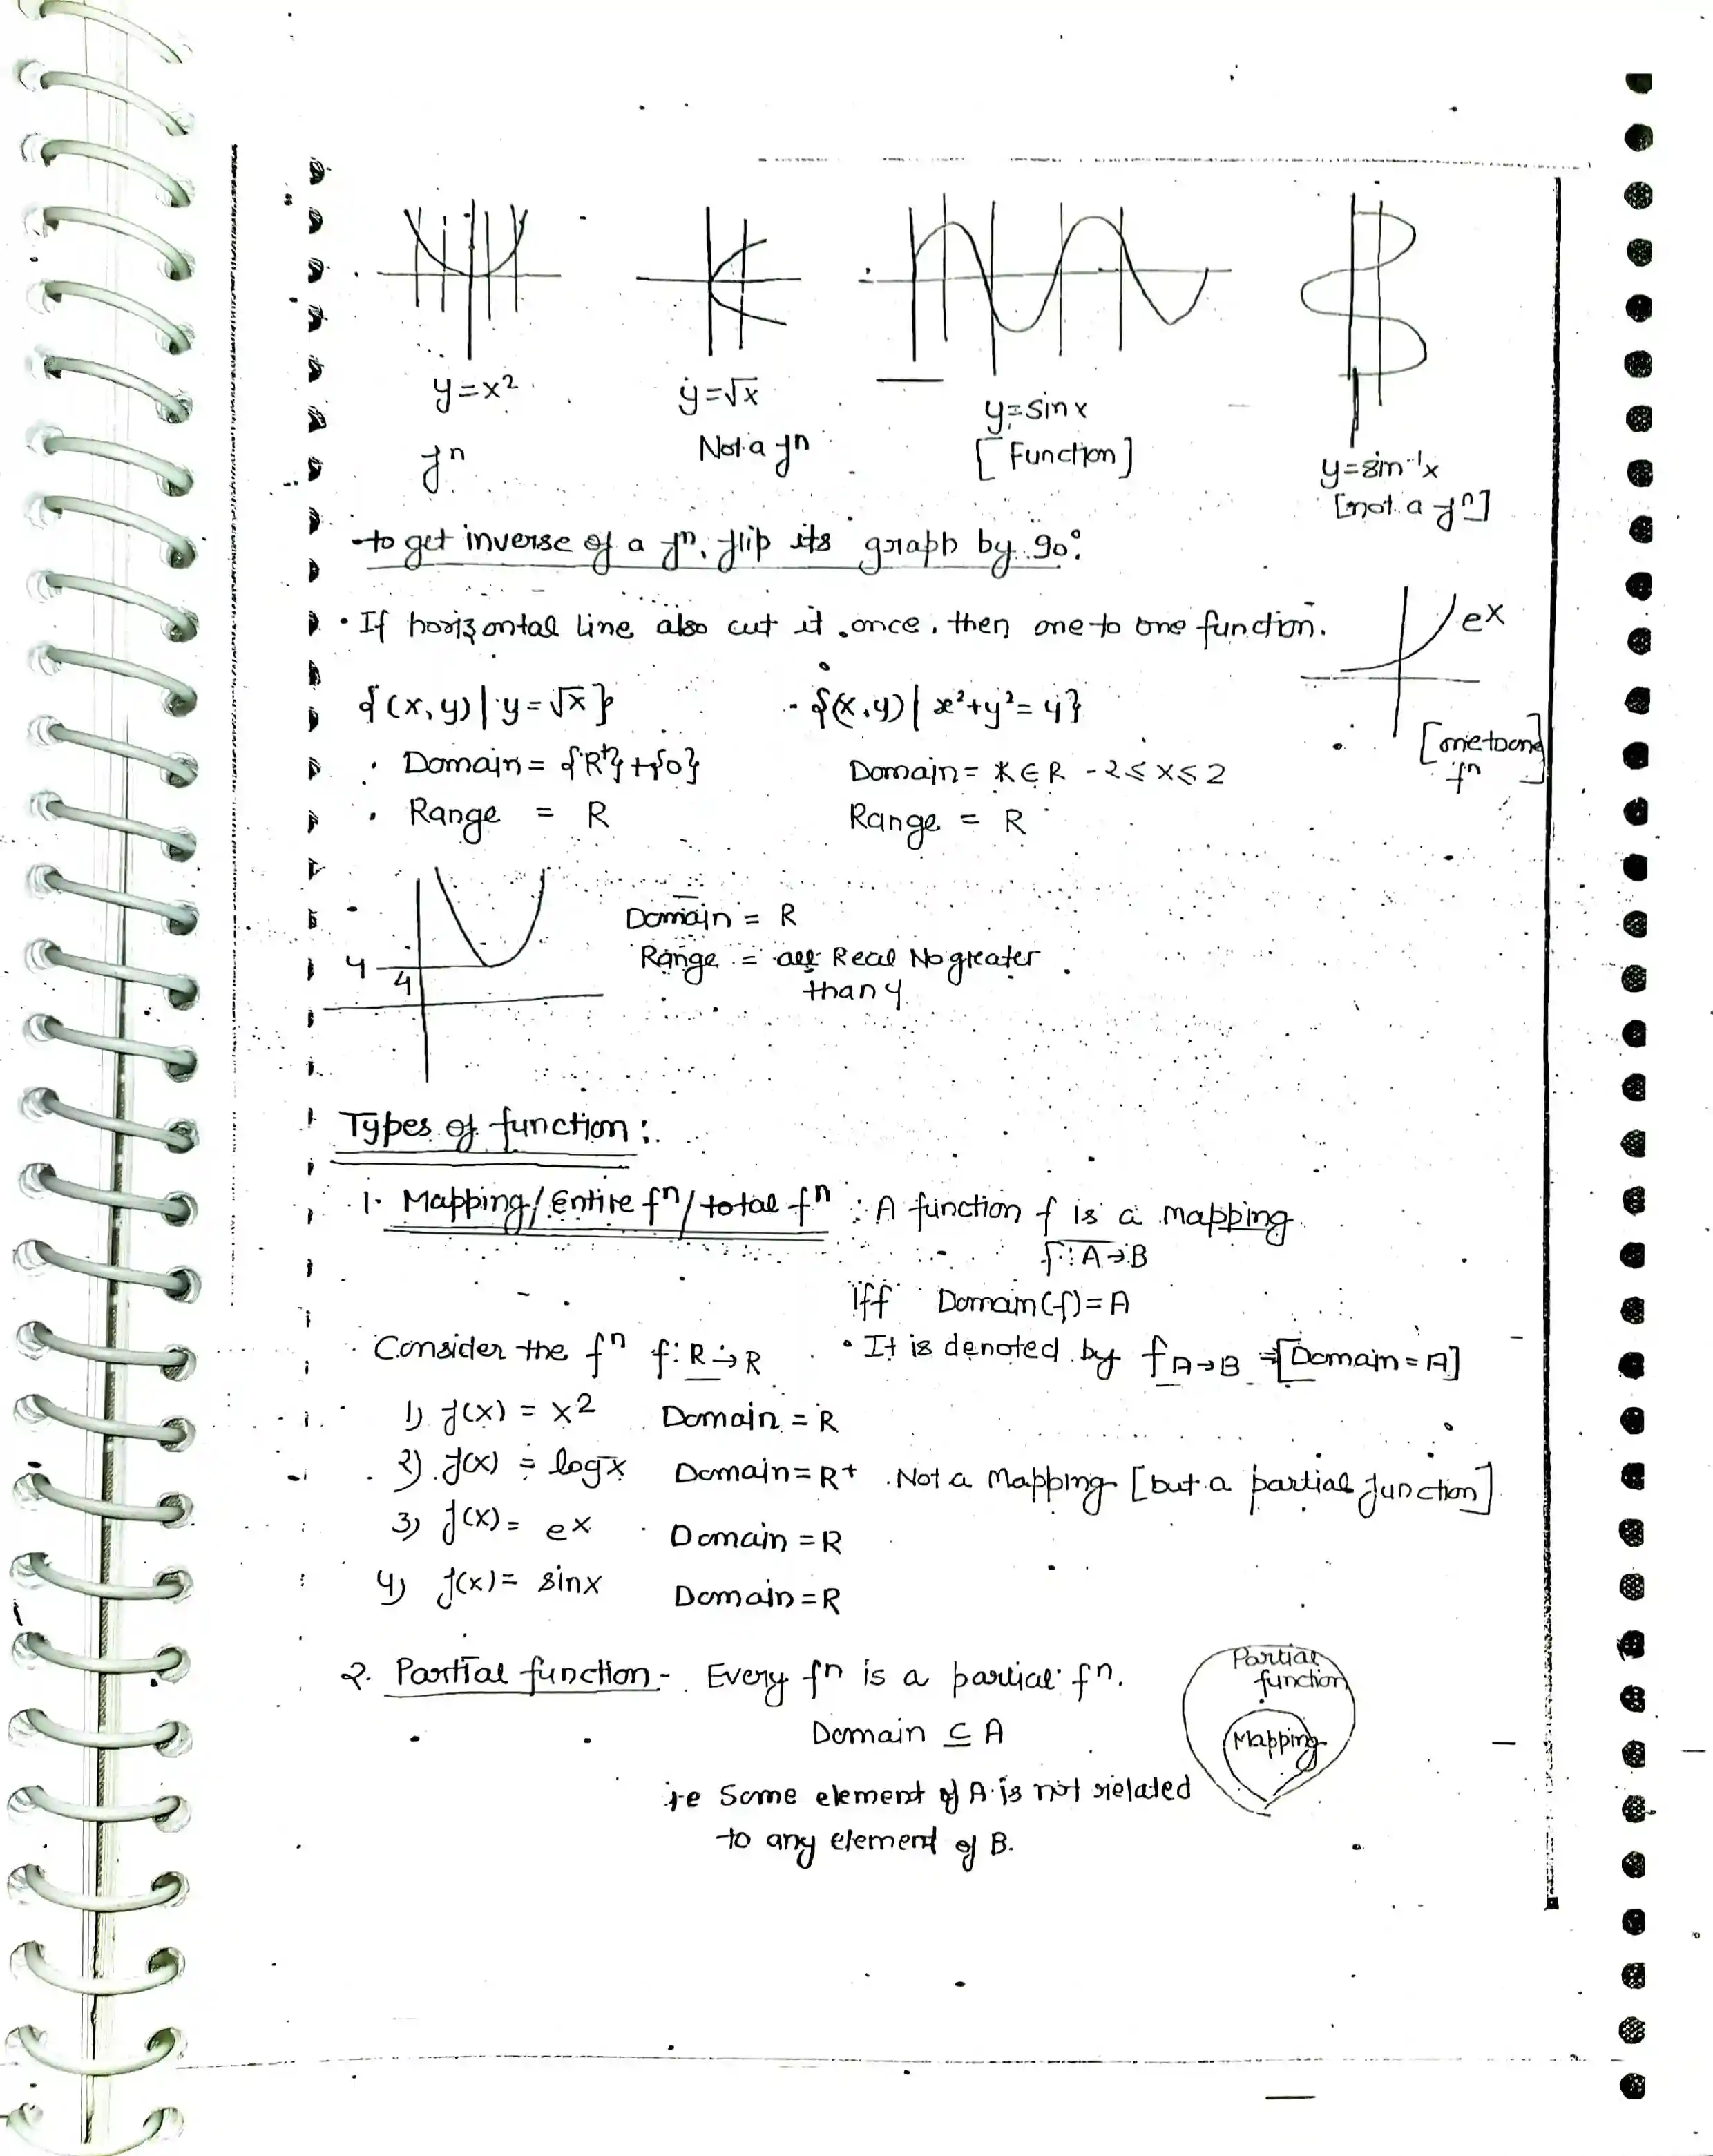 y=x²
fⁿ
y=√x
Not a fⁿ
y=sinx
[Function]
y=sin⁻¹x
[not a fⁿ]
to get inverse of a fⁿ, flip its graph by 90°
• If horizontal line also cut it once, then one to one function.
eˣ
[one to one fⁿ]
{(x,y) | y=√x}
• Domain = {R⁺}+{0}
• Range = R
- {(x,y) | x²+y²=4}
Domain = x∈R -2≤x≤2
Range = R
4
4
Domain = R
Range = all Real No greater
than 4
Types of function:
1. Mapping/entire fⁿ/total fⁿ : A function f is a mapping
f: A→B
Iff Domain(f)=A
Consider the fⁿ f: R→R
• It is denoted by f A→B ⇒[Domain=A]
1) f(x) = x² Domain = R
2) f(x) = logx Domain=R⁺ Not a Mapping [but a partial function]
3) f(x) = eˣ Domain = R
4) f(x) = sinx Domain=R
2. Partial function - Every fⁿ is a partial fⁿ.
Domain ⊆ A
i.e Some element of A is not related
to any element of B.
Partial
function
Mapping